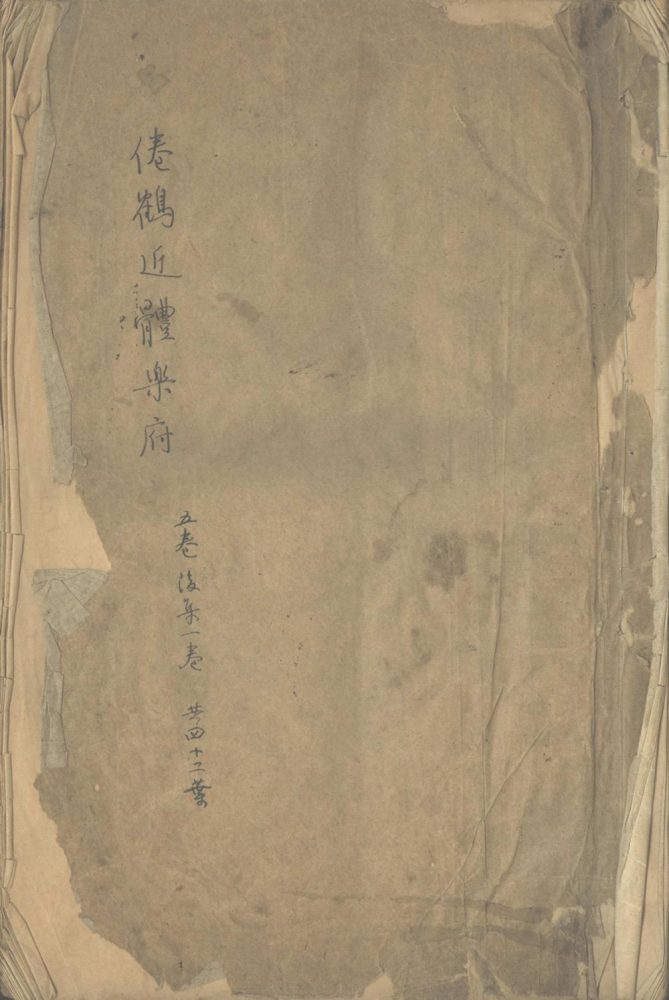 倦鶴近體樂府
五卷後集一卷 共四十二葉